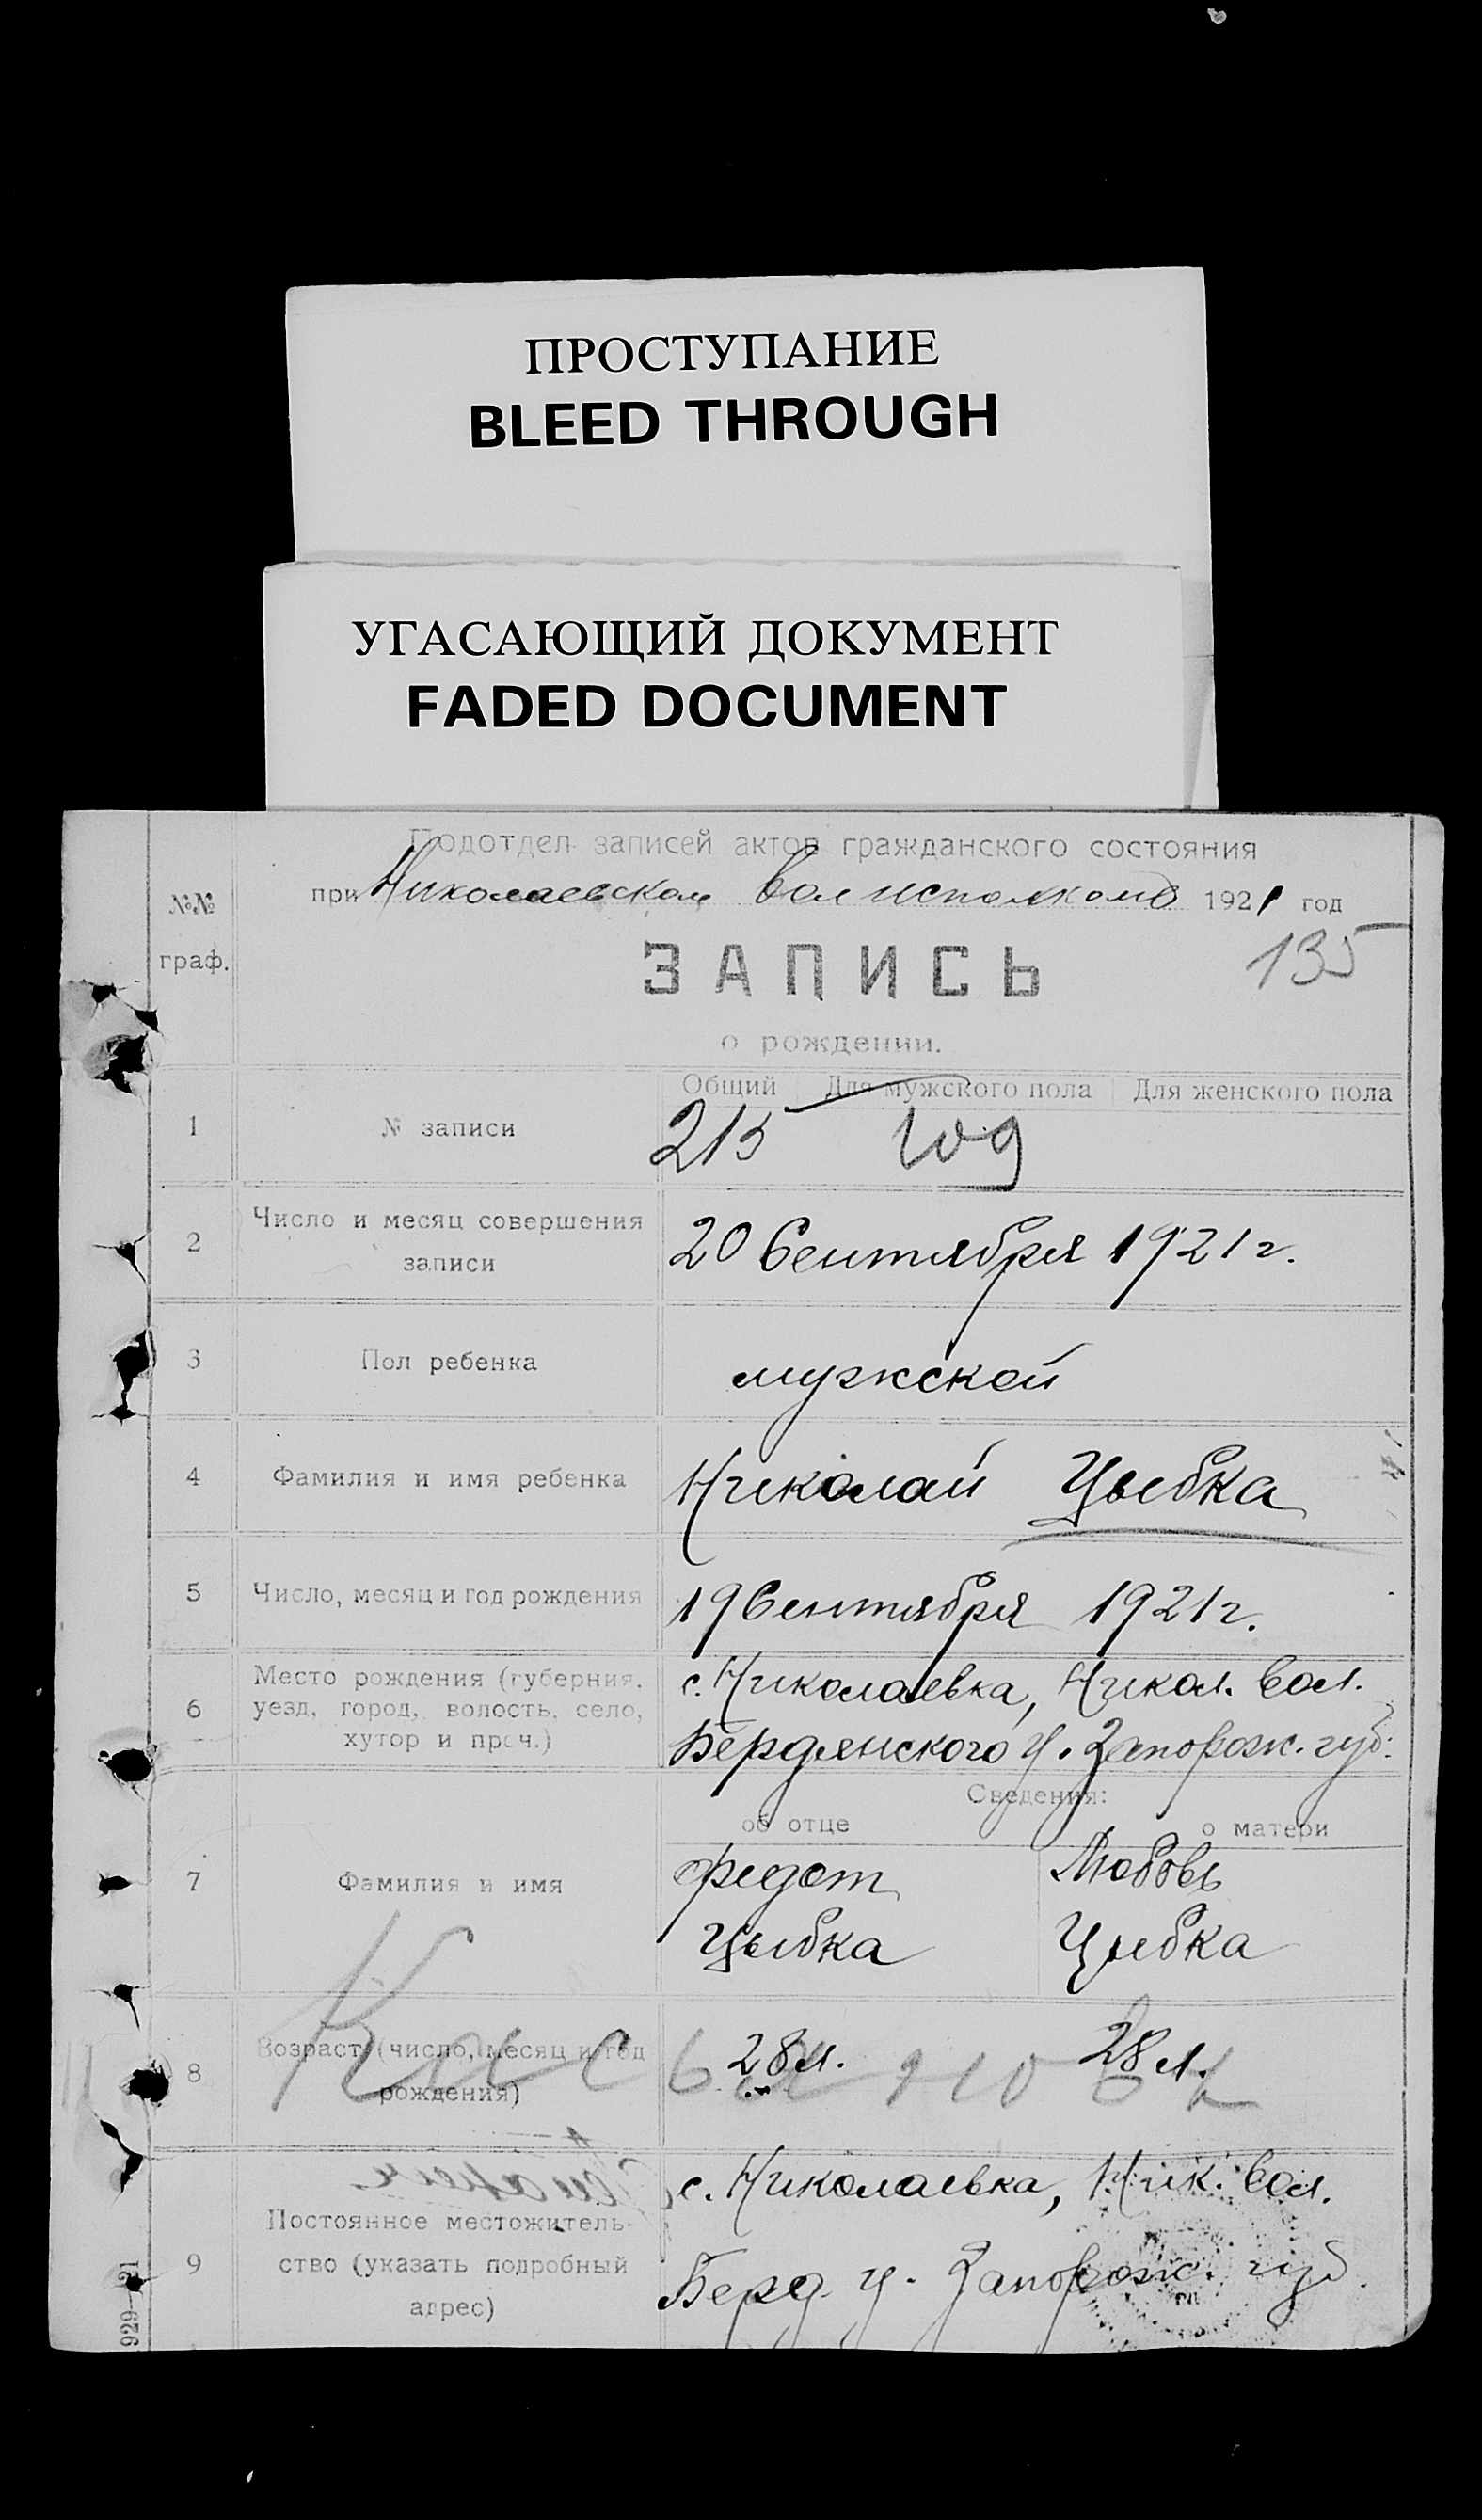 ПРОСТУПАНИЕ
BLEED THROUGH
УГАСАЮЩИЙ ДОКУМЕНТ
FADED DOCUMENT
Подотдел записей актов гражданского состояния
№№ при Николаевском Волисполкоме 1921 год
граф.
ЗАПИСЬ
135
о рождении.
Общий Для мужского пола Для женского пола
1 № записи 215 109
2 Число и месяц совершения
записи
20 Сентября 1921 г.
3 Пол ребенка мужской
4 Фамилия и имя ребенка Николай Цыбка
5 Число, месяц и год рождения 19 Сентября 1921 г.
6 Место рождения (губерния,
уезд, город, волость, село,
хутор и проч.)
с. Николаевка, Никол. Вол.
Бердянского у. Запорож. губ.
Сведения:
об отце о матери
7 Фамилия и имя
Федот Любовь
Цыбка Цыбка
8 Возраст (число, месяц и год
рождения)
28 л. 28 л.
9 Постоянное местожитель-
ство (указать подробный
адрес)
с. Николаевка, Ник. Вол.
Берд. у. Запорож. губ.
929 21